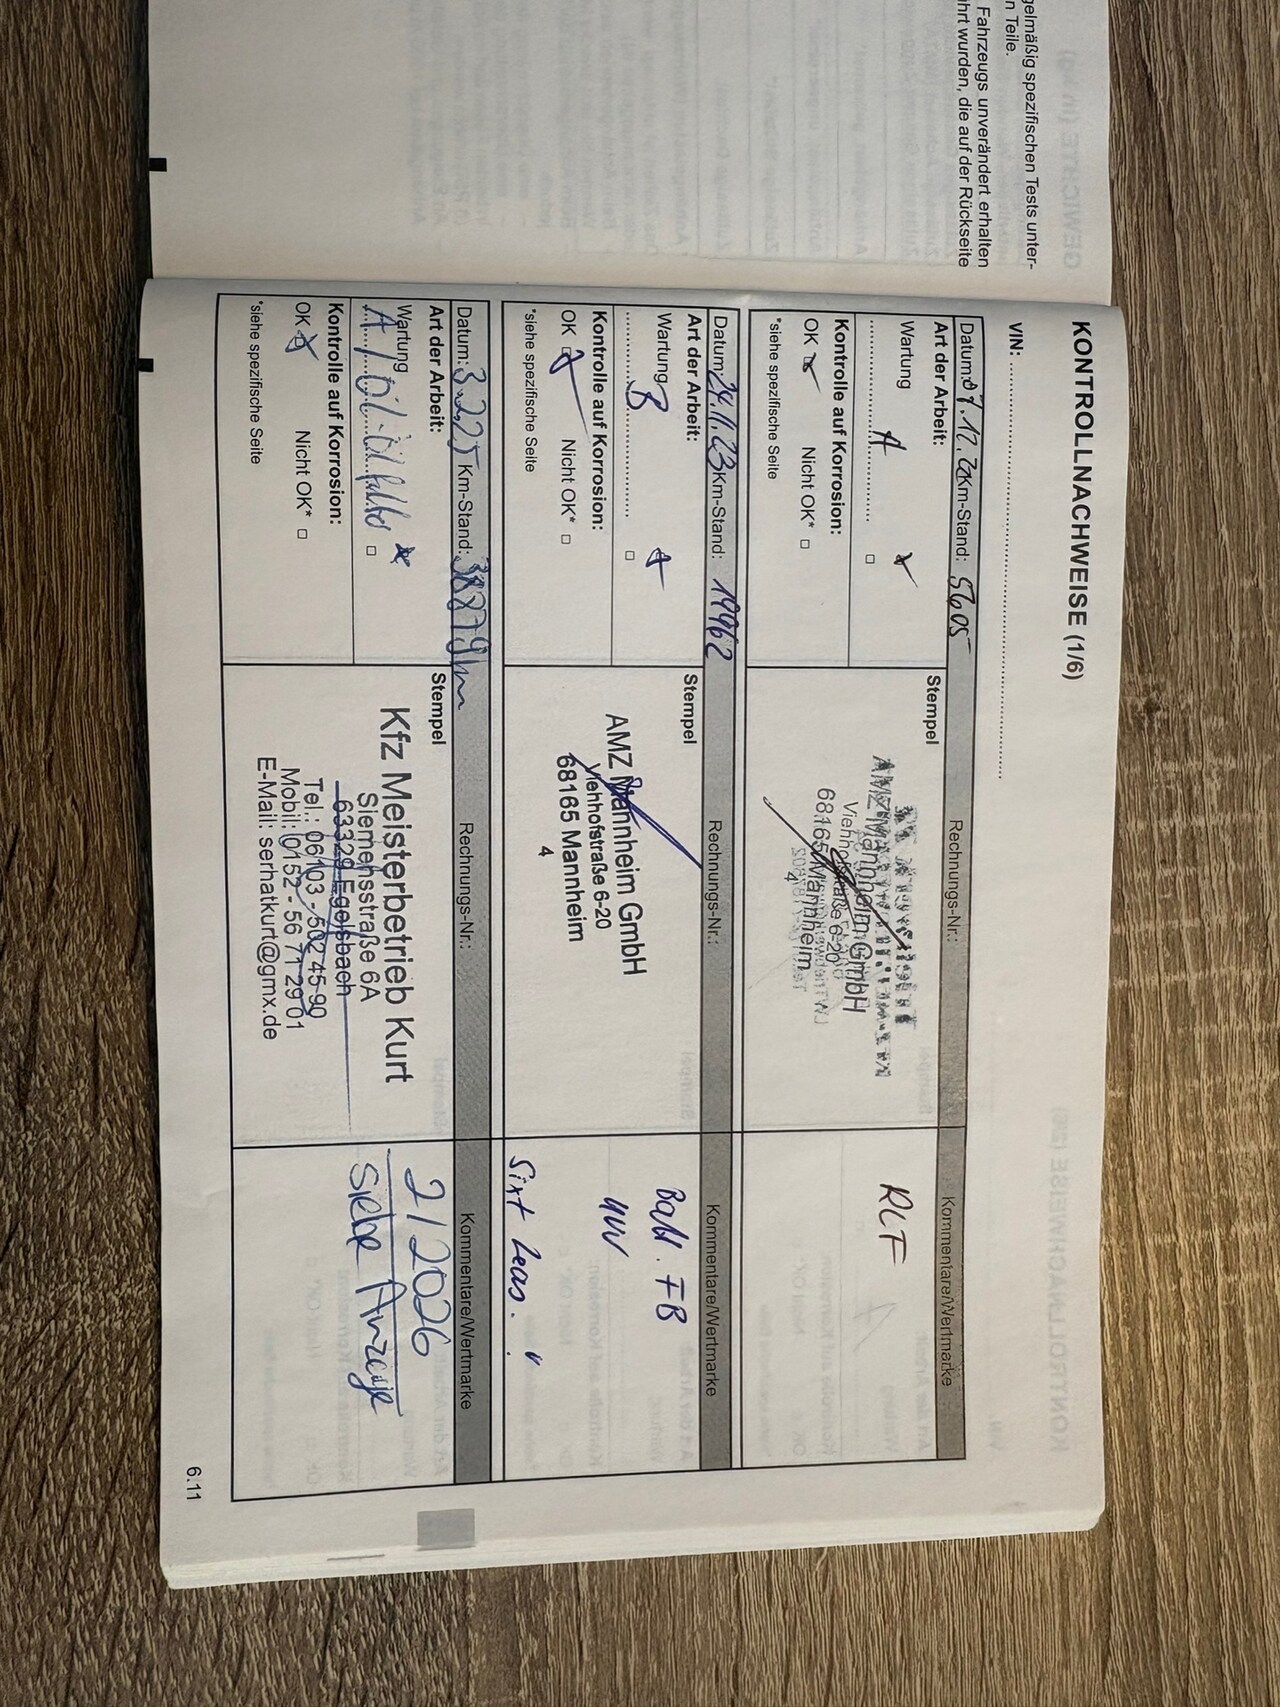 gelmäßig spezifischen Tests unter-
n Teile.
Fahrzeugs unverändert erhalten
hrt wurden, die auf der Rückseite
KONTROLLNACHWEISE (1/6)
VIN:
Datum: 07.12. Km-Stand: 5605 Rechnungs-Nr.: Kommentare/Wertmarke
Art der Arbeit:
Wartung
A
Kontrolle auf Korrosion:
OK Nicht OK*
*siehe spezifische Seite
Stempel
AMZ Mannheim GmbH
Viehhofstraße 6-20
68165 Mannheim
4
RLF
Datum: 24.11.23 Km-Stand: 19962 Rechnungs-Nr.: Kommentare/Wertmarke
Art der Arbeit:
Wartung B
Kontrolle auf Korrosion:
OK Nicht OK*
*siehe spezifische Seite
Stempel
AMZ Mannheim GmbH
Viehhofstraße 6-20
68165 Mannheim
4
Batt. FB
Sixt Leas.
Datum: 3.2.25 Km-Stand: 38879km Rechnungs-Nr.: Kommentare/Wertmarke
Art der Arbeit:
Wartung
A/Öl-Ölfilter
Kontrolle auf Korrosion:
OK Nicht OK*
*siehe spezifische Seite
Stempel
Kfz Meisterbetrieb Kurt
Siemensstraße 6A
63329 Egelsbach
Tel.: 06103 - 502 45 90
Mobil: 0152 - 56 71 29 01
E-Mail: serhatkurt@gmx.de
2/2026
siehe Anzeige
6.11